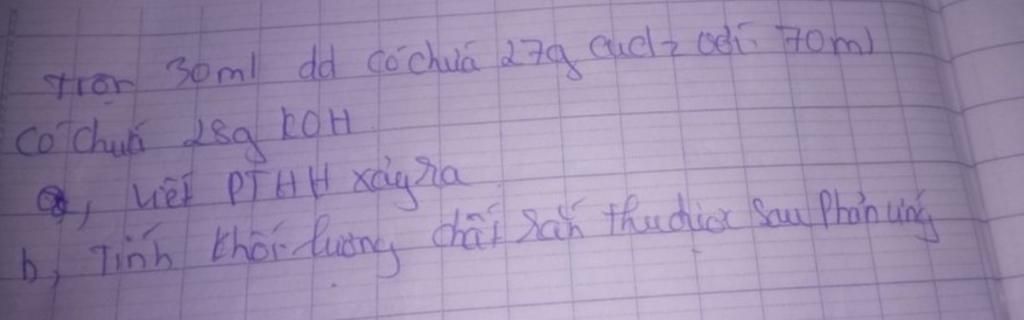 trộn 30ml dd có chứa 27g CuCl2 với 70ml
có chứa 28g KOH
a, viết PTHH xảy ra
b, Tính khối lượng chất rắn thu được sau phản ứng